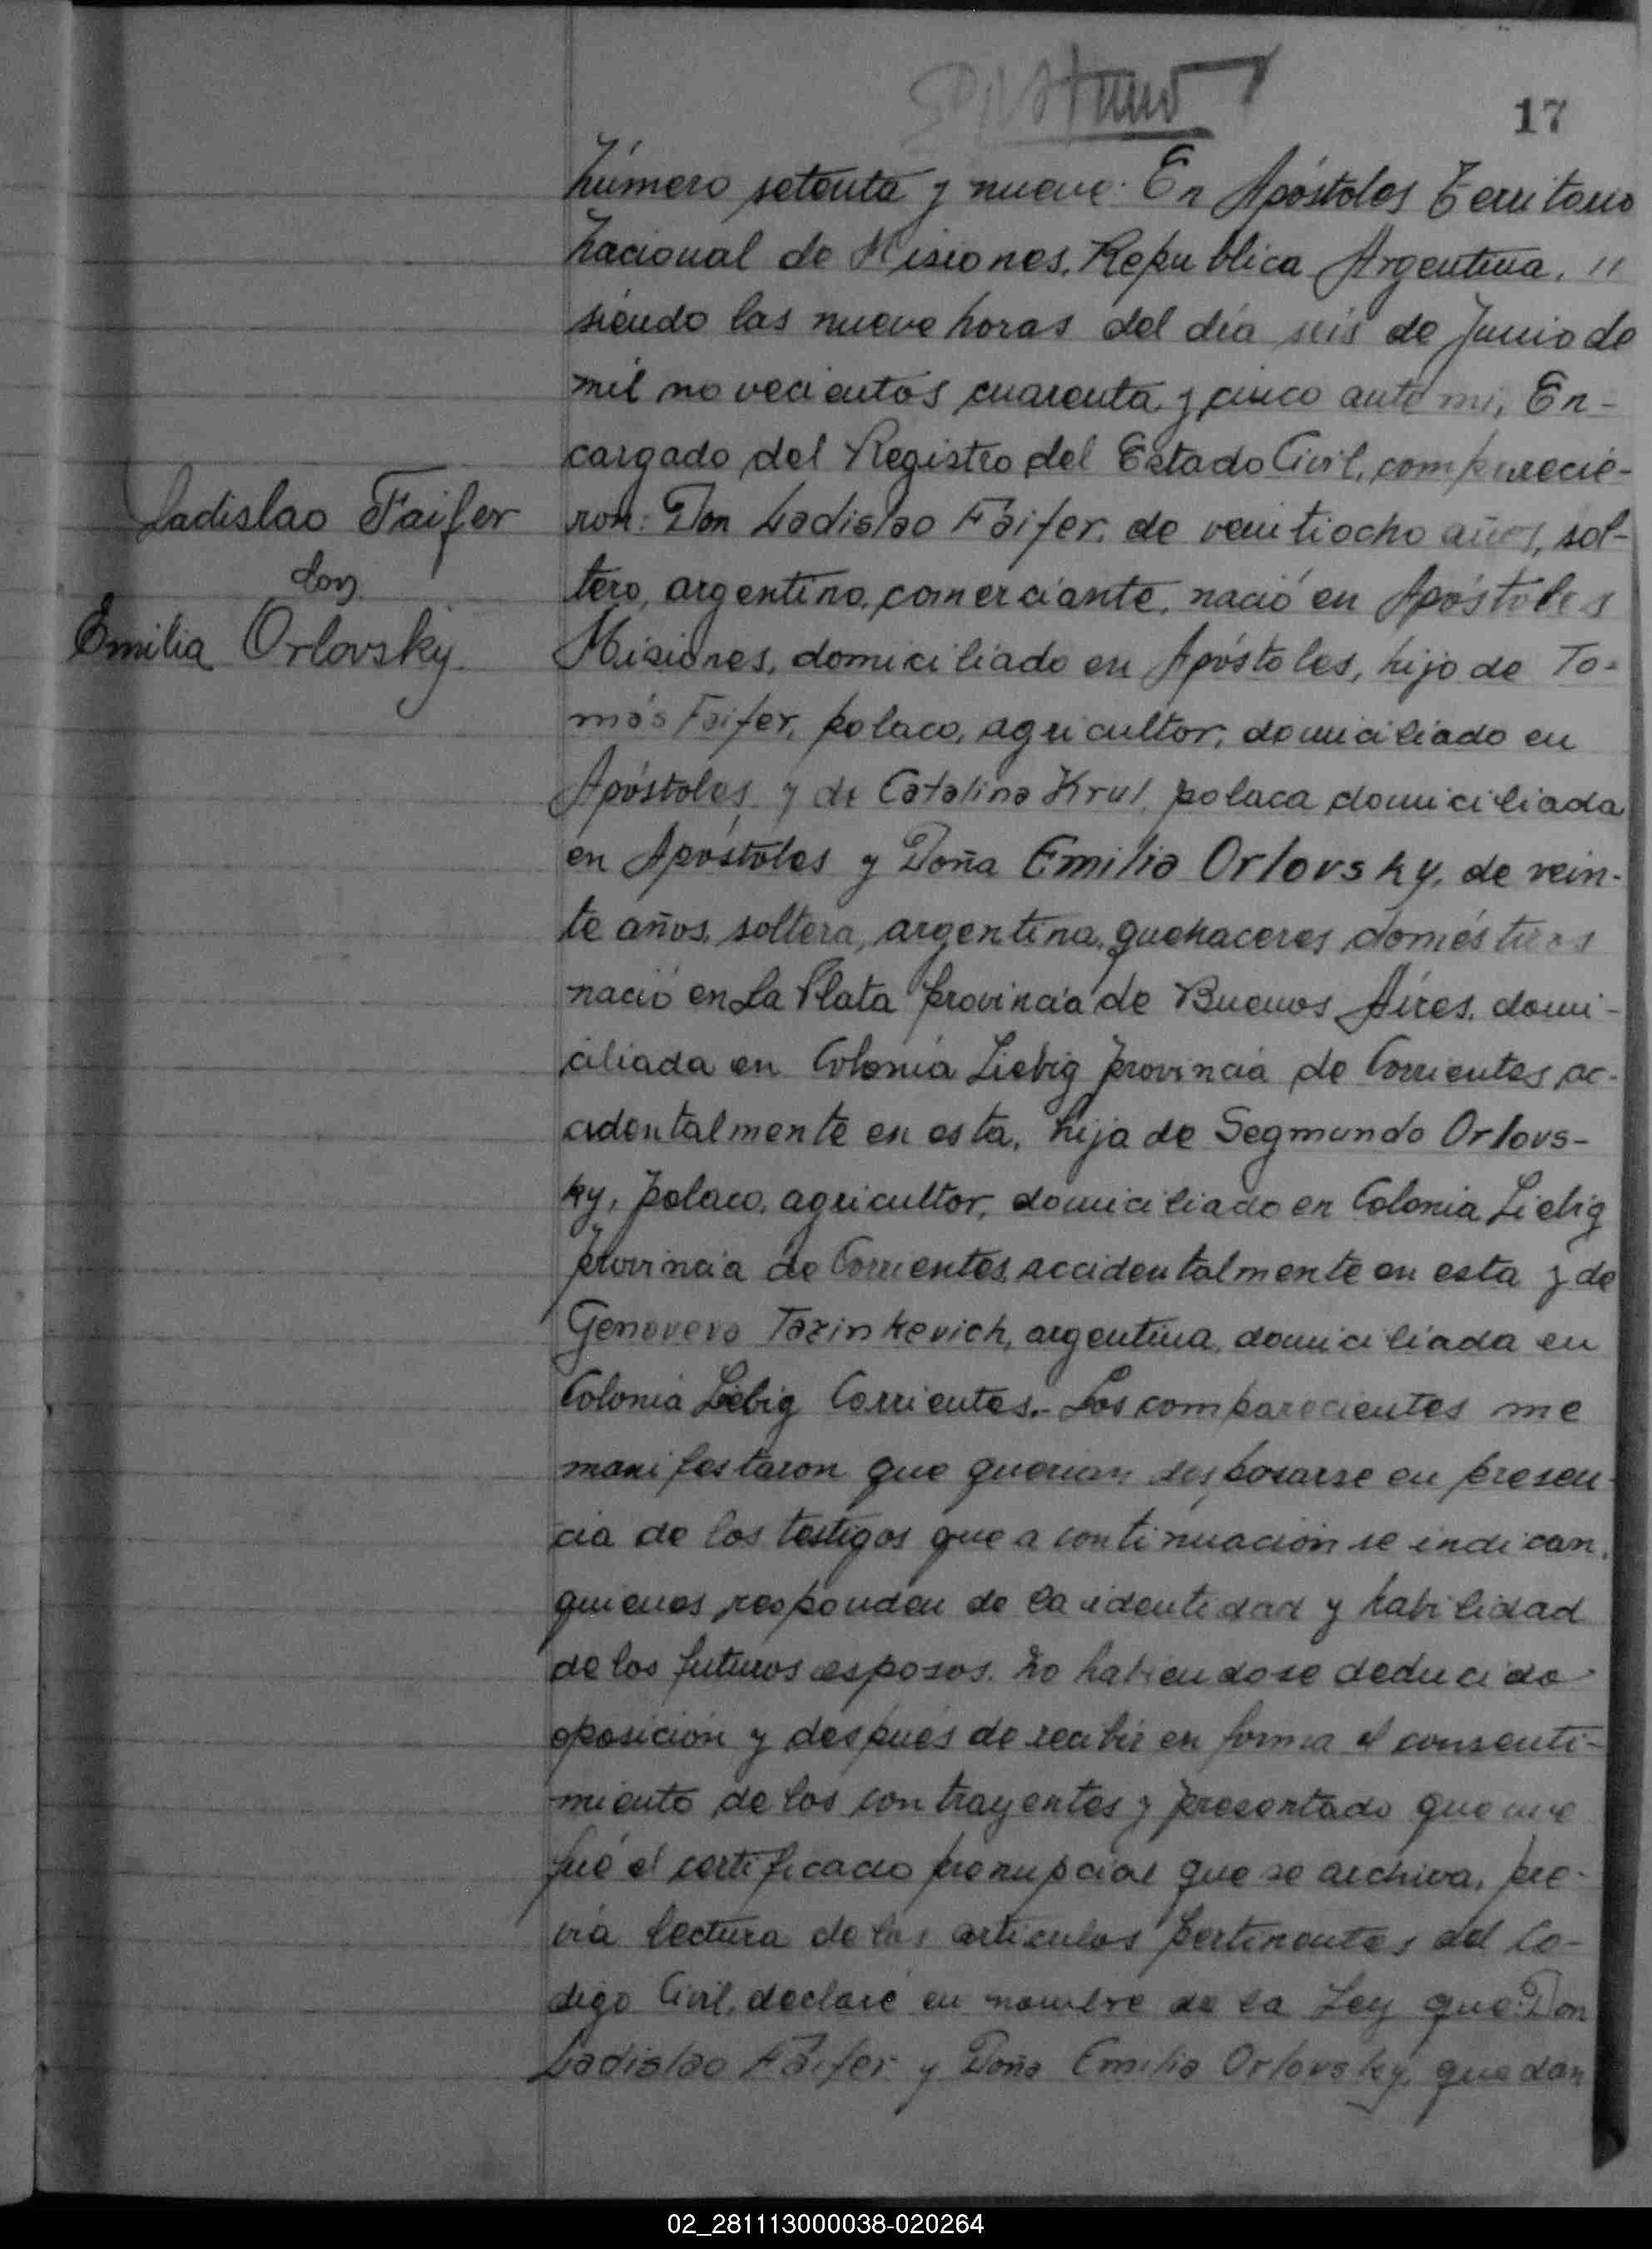 17
Número setenta y nueve: En Apóstoles Territorio
Nacional de Misiones, Republica Argentina, "
siendo las nueve horas del día seis de Junio de
mil novecientos cuarenta y cinco ante mi, En-
cargado del Registro del Estado Civil, comparecie-
Ladislao Faifer
con
Emilia Orlovsky.
ron: Don Ladislao Faifer, de veintiocho años, sol-
tero, argentino, comerciante, nació en Apóstoles
Misiones, domiciliado en Apóstoles, hijo de To-
más Faifer, polaco, agricultor, domiciliado en
Apóstoles, y de Catalina Krul, polaca domiciliada
en Apóstoles y Doña Emilia Orlovsky, de vein-
te años, soltera, argentina, quehaceres domésticos
nació en La Plata provincia de Buenos Aires, domi-
ciliada en Colonia Liebig provincia de Corrientes, ac-
cidentalmente en esta, hija de Segmundo Orlovs-
ky, polaco, agricultor, domiciliado en Colonia Liebig
provincia de Corrientes, accidentalmente en esta y de
Genoveva Tazinkevich, argentina, domiciliada en
Colonia Liebig Corrientes.- Los comparecientes me
manifestaron que querian desposarse en presen-
cia de los testigos que a continuación se indican,
quienes responden de la identidad y habilidad
de los futuros esposos. No habiendose deducido
oposición y después de recibir en forma el consenti-
miento de los contrayentes y presentado que me
fué el certificado prenupcial que se archiva, pre-
via lectura de los artículos pertinentes del Co-
digo Civil, declaré en nombre de la Ley que: Don
Ladislao Faifer y Doña Emilia Orlovsky, quedan
02_281113000038-020264